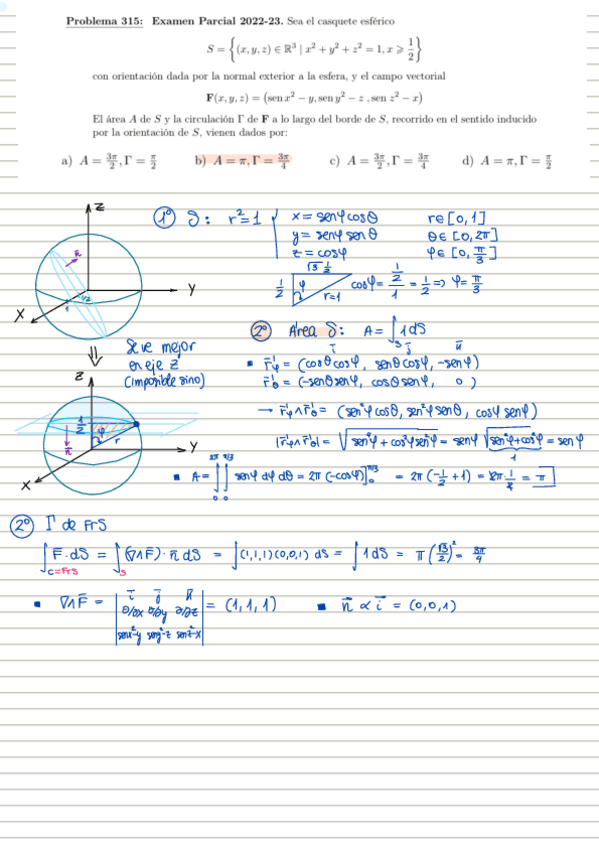 Problema 315: Examen Parcial 2022-23. Sea el casquete esférico
S = {(x, y, z) ∈ ℝ³ | x² + y² + z² = 1, x ⩾ 1/2}
con orientación dada por la normal exterior a la esfera, y el campo vectorial
F(x, y, z) = (sen x² − y, sen y² − z , sen z² − x)
El área A de S y la circulación Γ de F a lo largo del borde de S, recorrido en el sentido inducido
por la orientación de S, vienen dados por:
a) A = 3π/2, Γ = π/2 b) A = π, Γ = 3π/4 c) A = 3π/2, Γ = 3π/4 d) A = π, Γ = π/2
z
1º S: r²=1 { x = senφcosθ r∈[0,1]
y = senφ senθ θ∈[0,2π]
z = cosφ φ∈[0,π/3]
n
1/2 1
x
y
1/2 φ r=1 cosφ = (1/2)/1 = 1/2 => φ = π/3
2º Área S: A = ∫_S 1dS
Se ve mejor
en eje z
(imposible sino)
r̄'φ = (cosθcosφ, senθcosφ, -senφ)
r̄'θ = (-senθsenφ, cosθsenφ, 0)
→ r̄'φ∧r̄'θ = (sen²φcosθ, sen²φsenθ, cosφ senφ)
|r̄'φ∧r̄'θ| = √(sen⁴φ + cos²φsen²φ) = senφ √(sen²φ+cos²φ) = senφ
1
z
1/2 φ r
n
y
x
A = ∫₀^2π ∫₀^π/3 senφ dφ dθ = 2π (-cosφ)]₀^π/3 = 2π (-1/2 + 1) = 2π·1/2 = π
2º Γ de FrS
∫_C=FrS F̄·dS = ∫_S (∇∧F̄)·n̄ dS = ∫(1,1,1)(0,0,1) dS = ∫1dS = π(√3/2)² = 3π/4
∇∧F̄ = | i j k ; ∂/∂x ∂/∂y ∂/∂z ; senx²-y seny²-z senz²-x | = (1,1,1) n̄ ∝ i = (0,0,1)